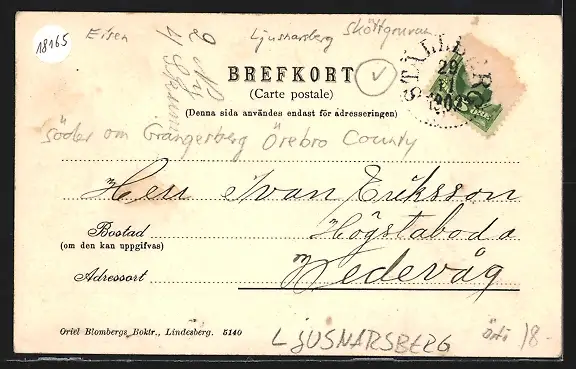 18165
Eisen
2 Ny
Ljusnarsberg
Sköttgruvan
STÄLLBERG
29
1903
BREFKORT
(Carte postale)
(Denna sida användes endast för adresseringen)
söder om Grängesberg Örebro County
Herr Ivan Eriksson
Bostad Högstaboda
(om den kan uppgifvas)
Adressort Medevåg
Oriel Blombergs Boktr., Lindesberg. 5140
LJUSNARSBERG
18-